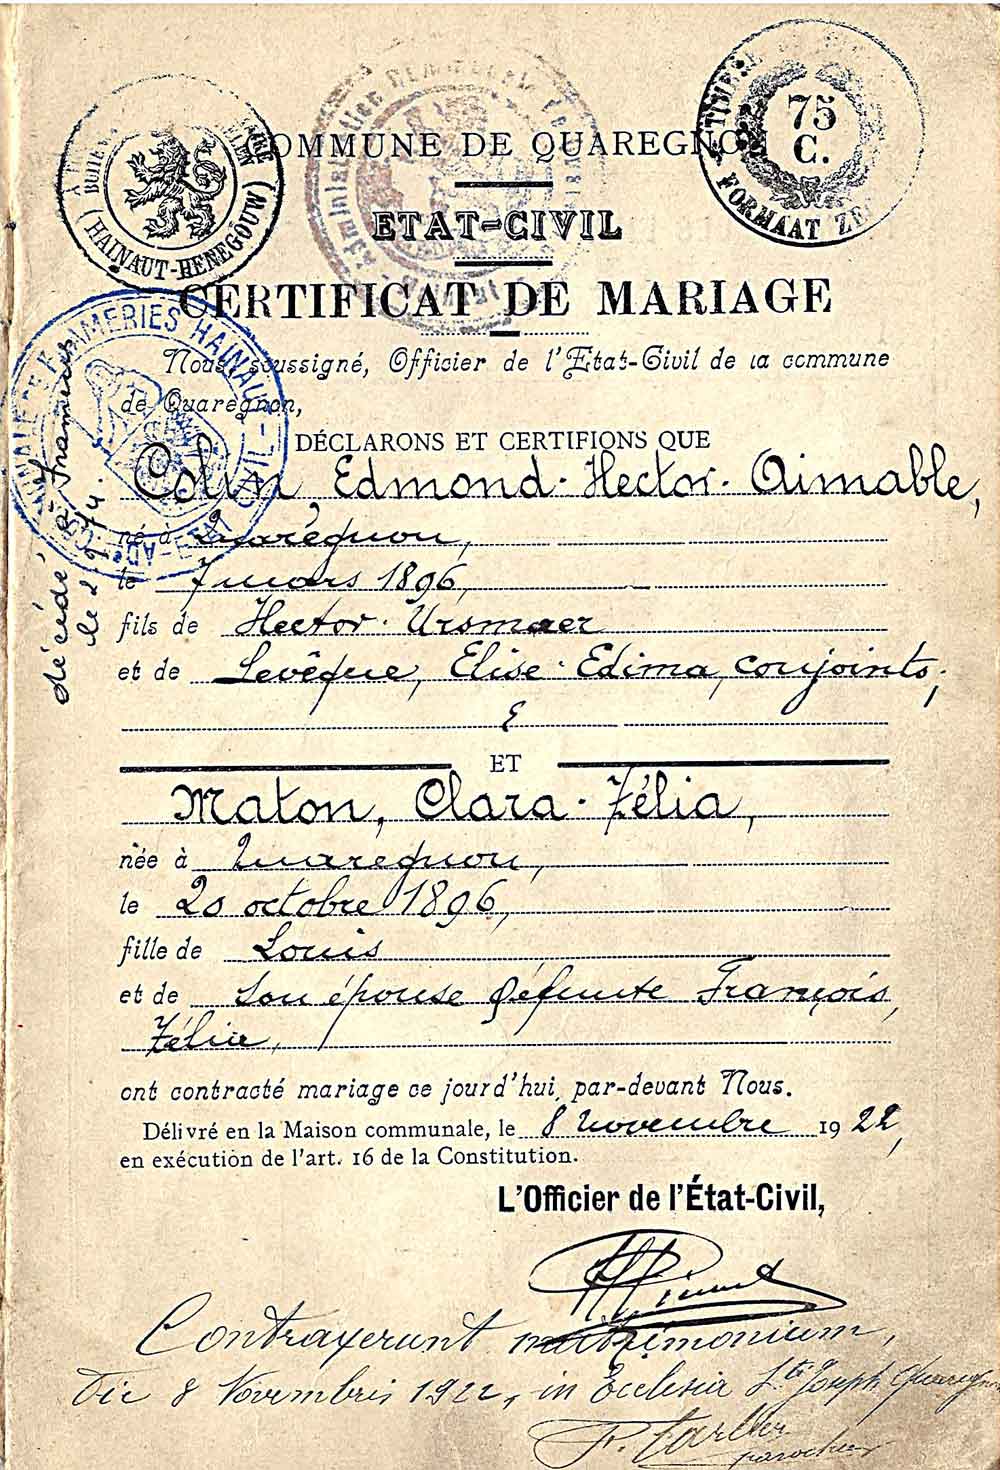 (HAINAUT-HENEGOUW)
75
C.
FORMAAT
COMMUNE DE QUAREGNON
ETAT-CIVIL
CERTIFICAT DE MARIAGE
FRAMERIES HAINAUT
ETAT CIVIL
Nous soussigné, Officier de l'Etat-Civil de la commune
de Quaregnon,
DÉCLARONS ET CERTIFIONS QUE
Colin, Edmond-Hector-Aimable,
né à Quaregnon,
le 7 mars 1896,
fils de Hector-Ursmaer
et de Levêque, Elise-Edima, conjoints;
décédé à Frameries
ET
Maton, Clara-Zélia,
née à Quaregnon,
le 20 octobre 1896,
fille de Louis
et de son épouse défunte François,
Zélia,
ont contracté mariage ce jourd'hui, par-devant Nous.
Délivré en la Maison communale, le 8 novembre 1922,
en exécution de l'art. 16 de la Constitution.
L'Officier de l'État-Civil,
Contraxerunt matrimonium,
Die 8 Novembris 1922, in Ecclesia Sti Joseph Quaregnon
F. Tarlier
parochus